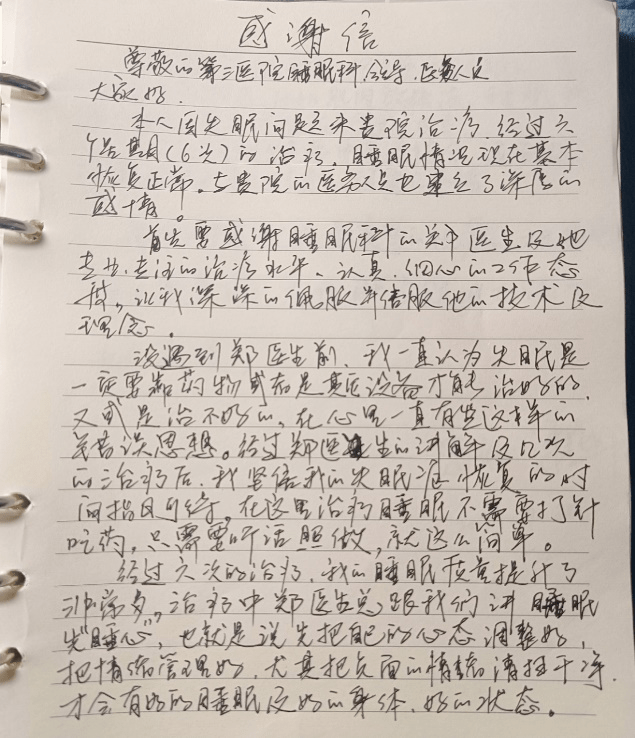 感谢信
尊敬的第三医院睡眠科领导、医务人员
大家好.
本人因失眠问题来贵院治疗. 经过六
个周期(6次)的治疗. 睡眠情况现在基本
恢复正常. 与贵院的医务人员也建立了深厚的
感情。
首先要感谢睡眠科的郑医生及他
专业. 专注的治疗水平、认真. 细心的工作态
度, 让我深深的佩服并信服他的技术及
理念.
没遇到郑医生前. 我一直认为失眠是
一定要靠药物或者是其它设备才能治好的.
又或是治不好的. 在心里一直有些这样的
错误思想。经过郑医生的讲解及几次
的治疗后, 我坚信我的失眠症恢复的时
间指日可待. 在这里治疗睡眠不需要打针
吃药, 只需要听话照做, 就这么简单。
经过六次的治疗. 我的睡眠质量提升了
非常多, 治疗中郑医生总跟我们讲睡眠
先"睡心", 也就是说先把自己的心态调整好,
把情绪管理好. 尤其把负面的情绪清扫干净.
才会有好的睡眠及好的身体. 好的状态。